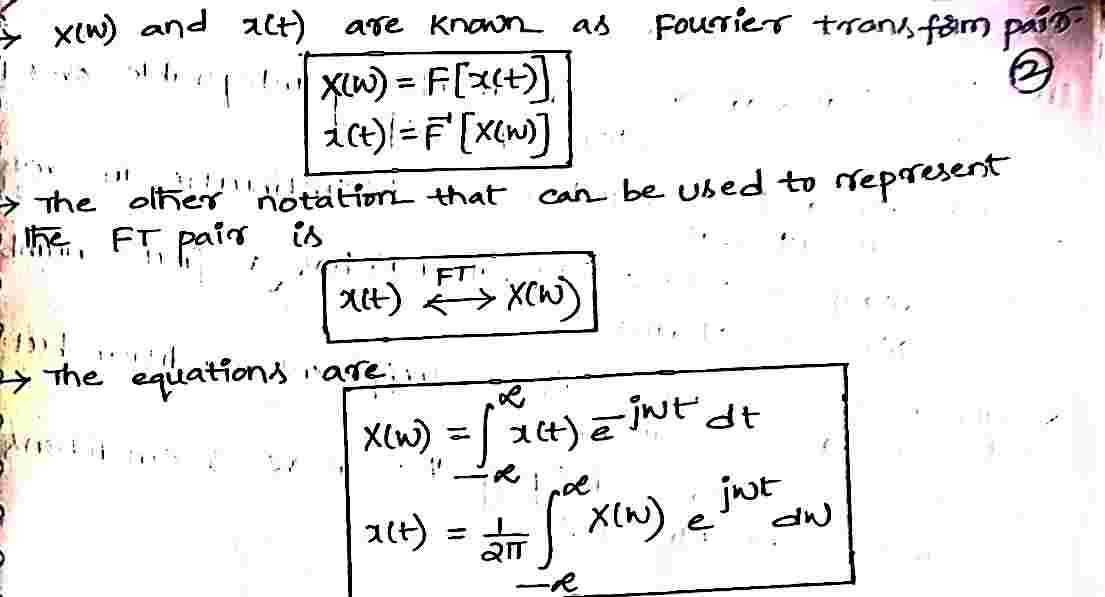 → X(w) and x(t) are known as Fourier transform pair.
②
X(w) = F[x(t)]
x(t) = F⁻¹[X(w)]
→ The other notation that can be used to represent
the FT pair is
x(t) ←FT→ X(w)
→ The equations are
X(w) = ∫_{-∞}^{∞} x(t) e^{-jwt} dt
x(t) = 1/2π ∫_{-∞}^{∞} X(w) e^{jwt} dw